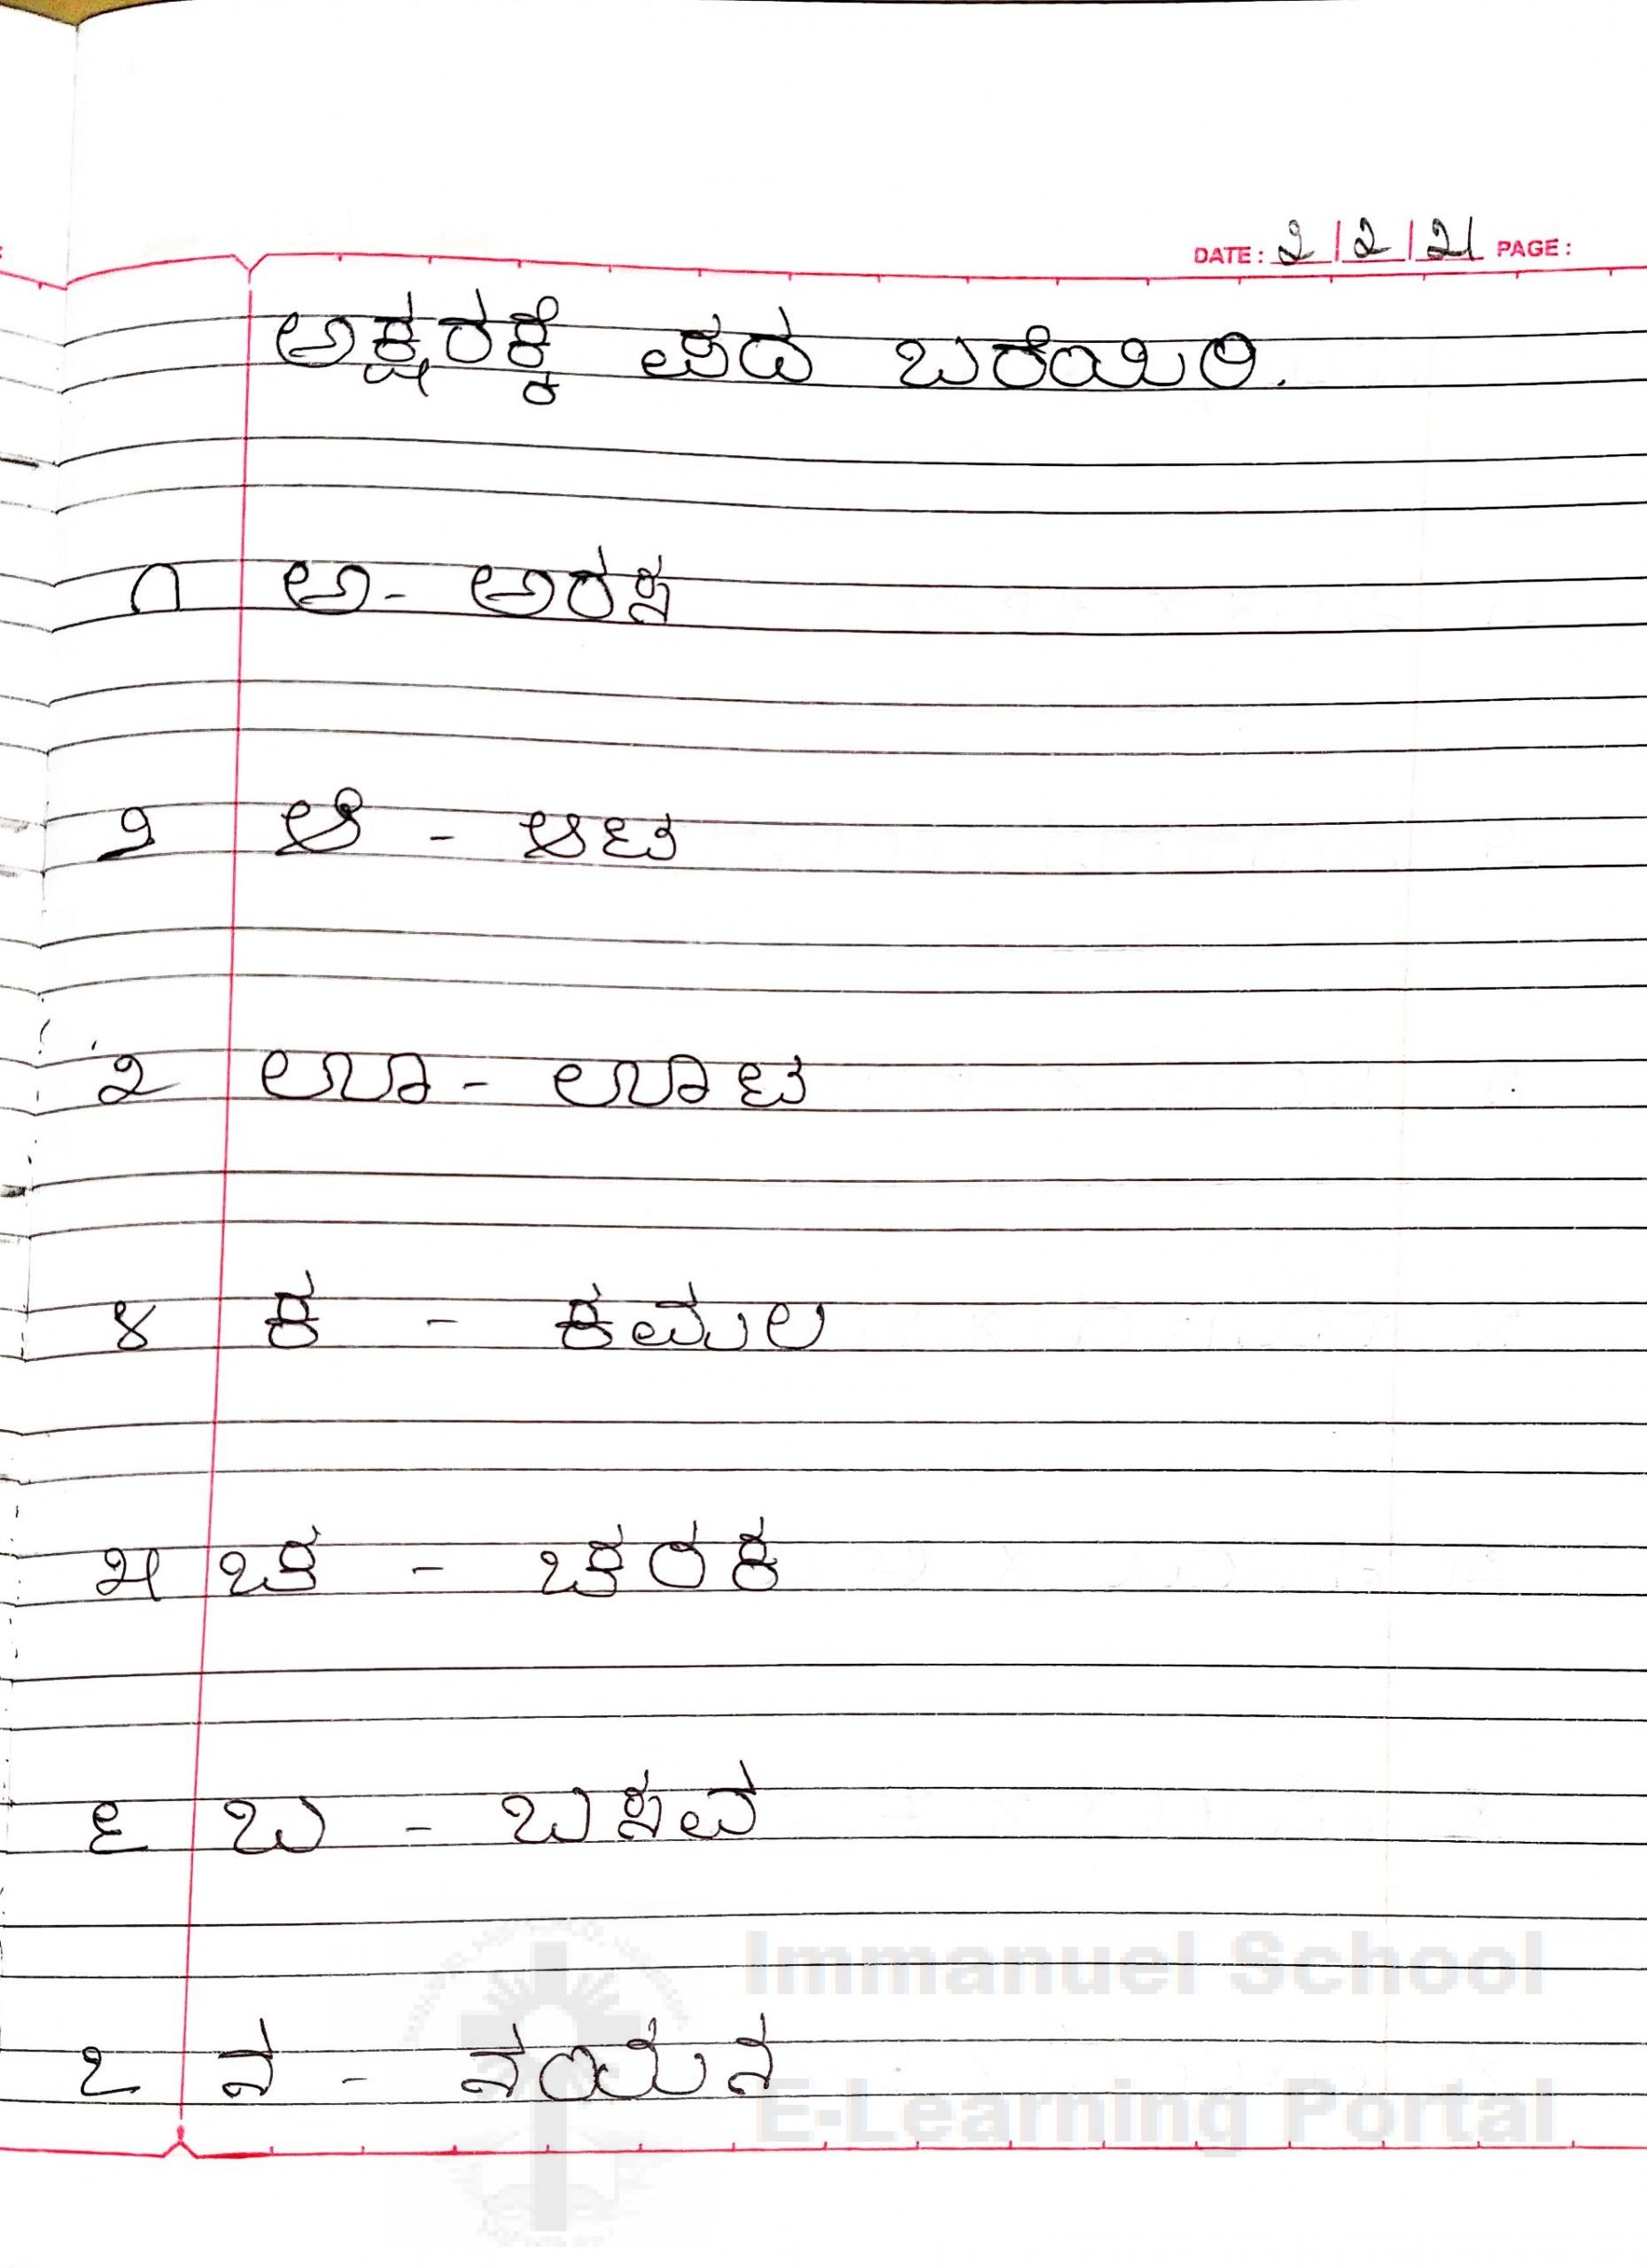 DATE: 2 / 2 / 21 PAGE:
ಅಕ್ಷರಕ್ಕೆ ಪದ ಬರೆಯಿರಿ.
೧ ಅ - ಅರಸ
೨ ಆ - ಆಟ
೩ ಊ - ಊಟ
೪ ಕ - ಕಮಲ
೫ ಚ - ಚರಕ
೬ ಬ - ಬಸವ
೭ ನ - ನಯನ
Immanuel School
E-Learning Portal